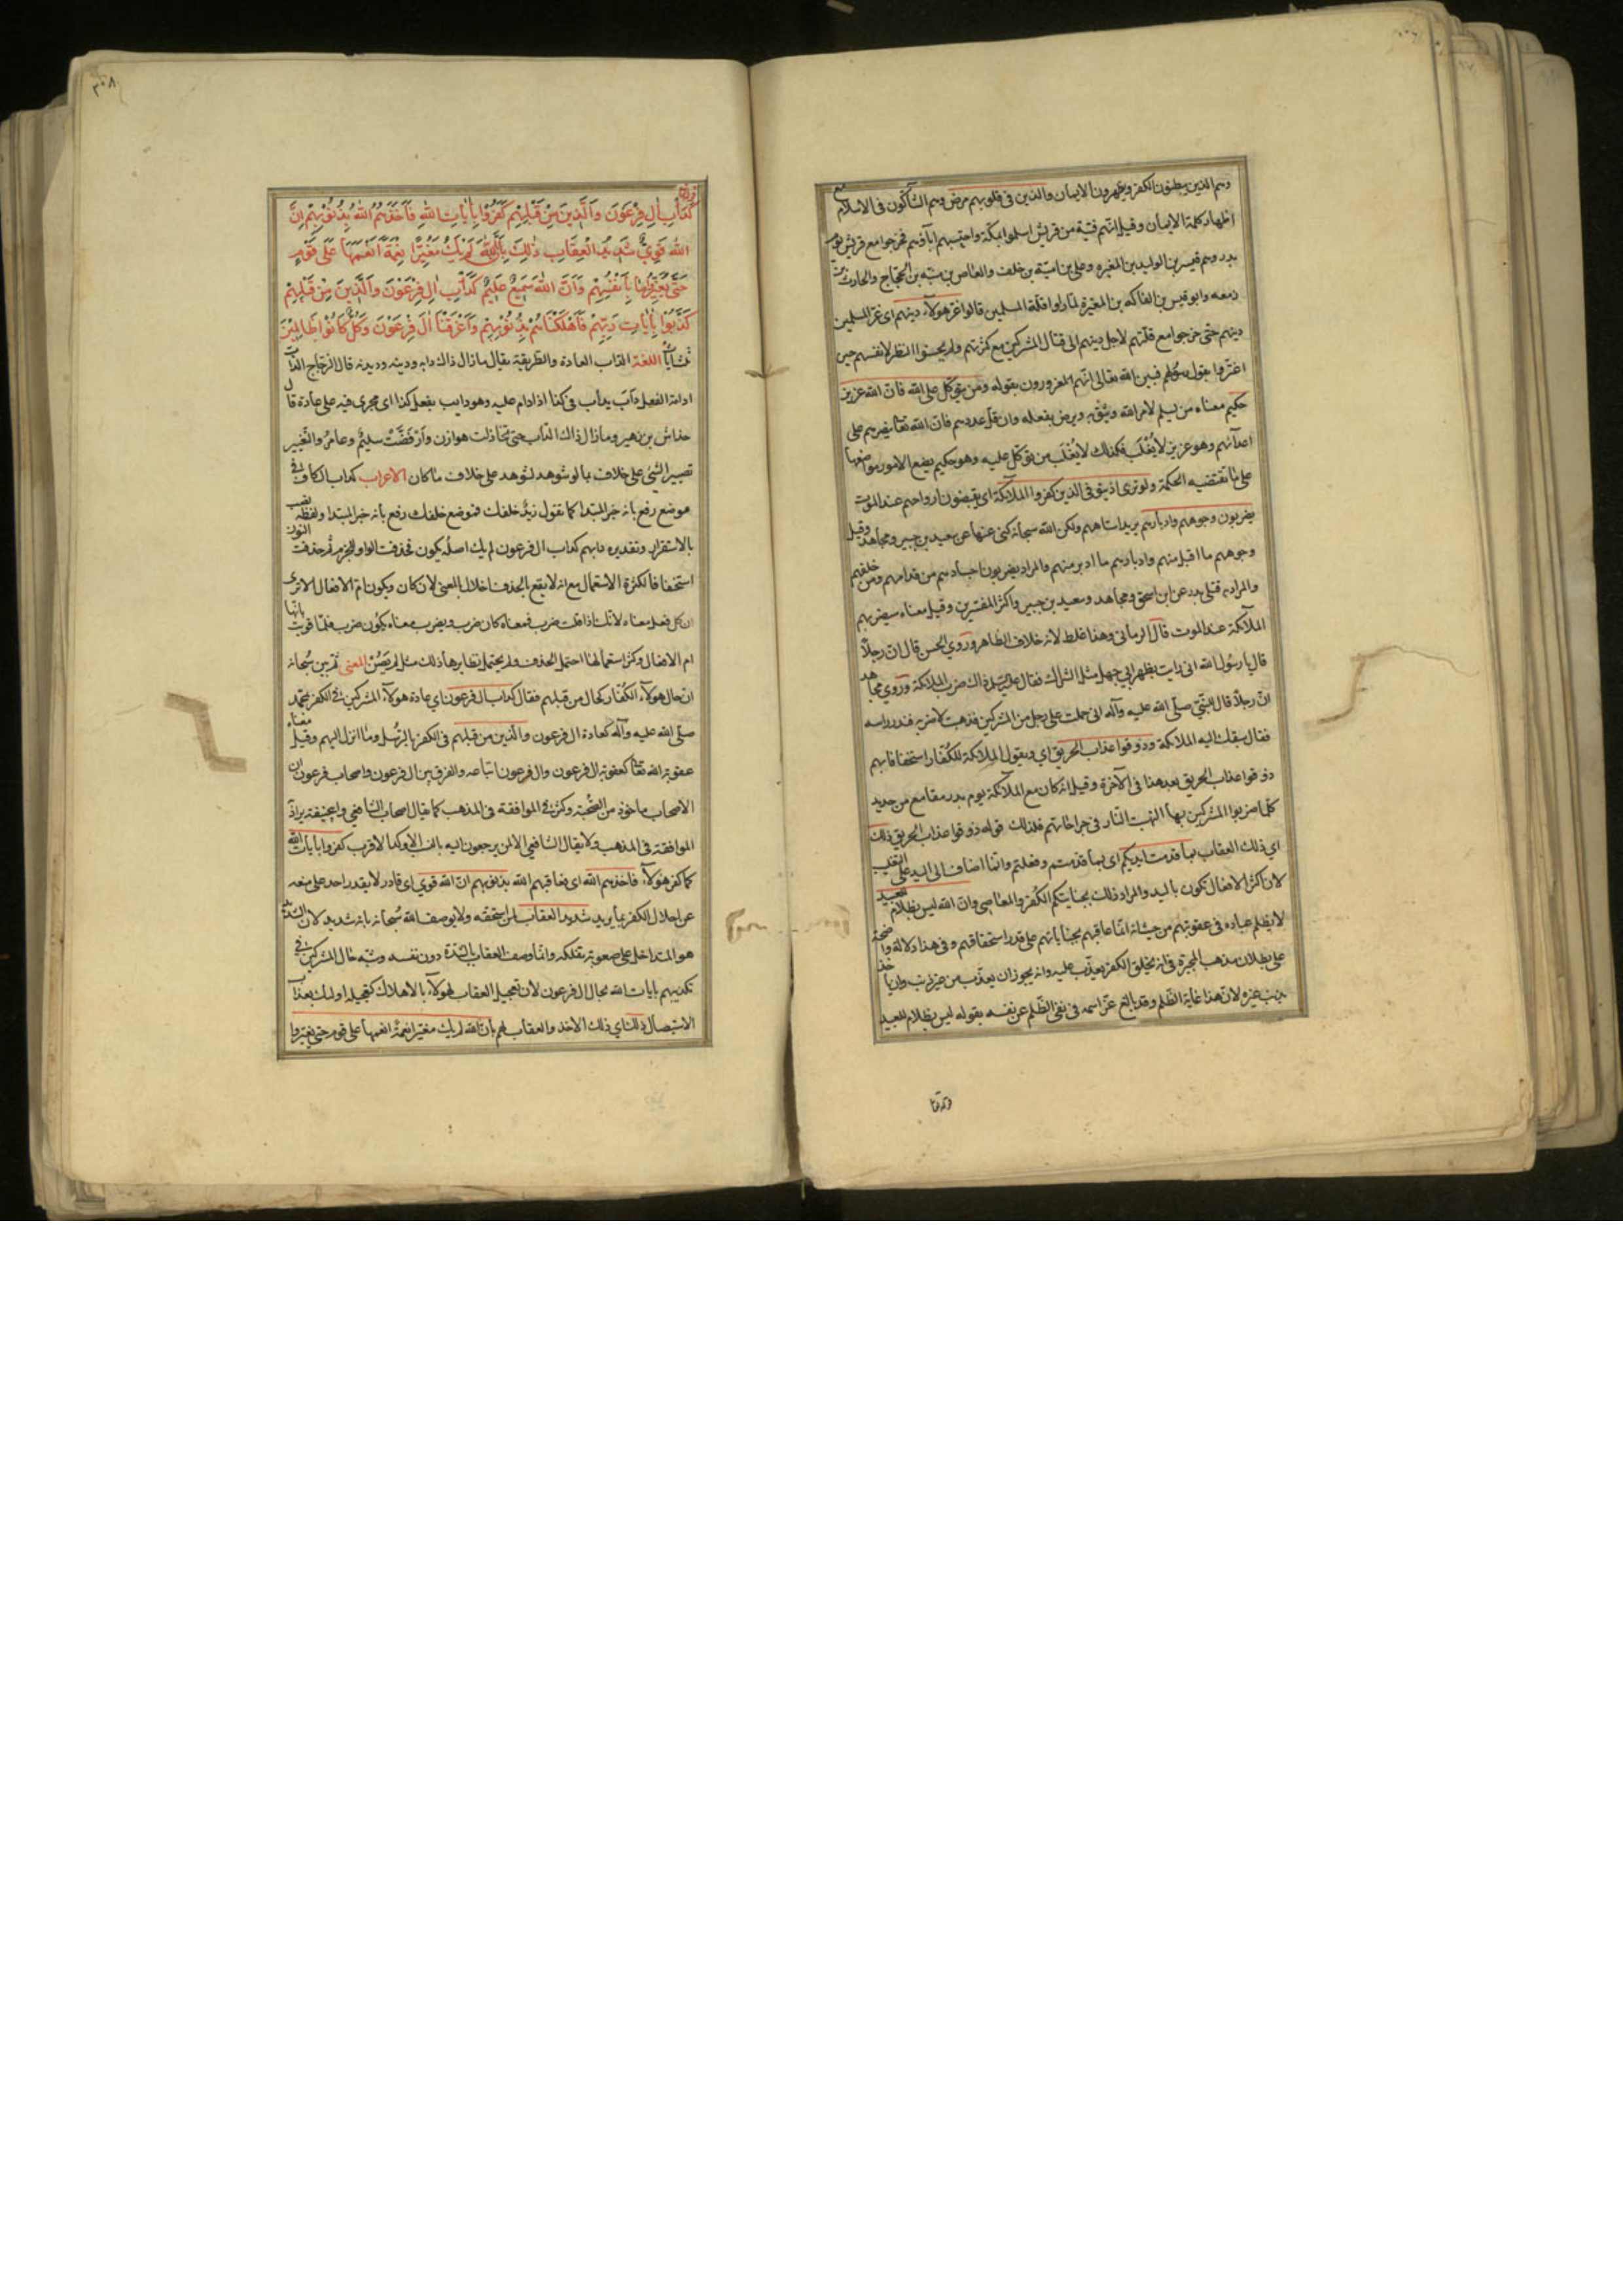 وهم الذين يبطنون الكفر ويظهرون الايمان والذين في قلوبهم مرض وهم الشاكون في الاسلام مع
اظهار كلمة الايمان وقيل انهم فتية من قريش اسلموا بمكة واحتبسهم اباؤهم فخرجوا مع قريش يوم
بدر وهم قيس بن الوليد بن المغيره وعلي بن امية بن خلف والعاص بن منبه بن الحجاج والحارث بن
زمعه وابو قيس بن الفاكه بن المغيرة لما راوا قلة المسلمين قالوا غر هولاء دينهم اى غر المسلمين
دينهم حتى خرجوا مع قلتهم لاجل دينهم الى قتال المشركين مع كثرتهم ولم يحسنوا النظر لانفسهم حين
اغتروا بقول رسولهم فبين الله تعالى انهم المغرورون بقوله ومن يتوكل على الله فان الله عزيز
حكيم معناه من يسلم لامر الله ويثق به ويرض بفعله وان قل عددهم فان الله تعا ينصرهم على
اعدائهم وهو عزيز لا يُغْلَب فكذلك لا يُغْلَب من توكل عليه وهو حكيم يضع الامور مواضعها
على ما تقتضيه الحكمة ولو ترى اذ يتوفى الذين كفروا الملائكة اى يقبضون ارواحهم عند الموت
يضربون وجوههم وادبارهم يريد استاههم ولكن الله سبحانه كنى عنها عن سعيد بن جبير ومجاهد وقيل
وجوههم ما اقبل منهم وادبارهم ما ادبر منهم والمراد يضربون اجسادهم من قدامهم ومن خلفهم
والمراد به قتلى بدر عن ابن اسحق ومجاهد وسعيد بن جبير واكثر المفسرين وقيل معناه سيضربهم
الملائكة عند الموت قال الرماني وهذا غلط لانه خلاف الظاهر وروي الحسن قال ان رجلاً
قال يا رسول الله اني رايت بظهر ابي جهل مثل الشراك فقال عليه السلم ذاك ضرب الملائكة وروي مجاهد
ان رجلاً قال للنبي صلى الله عليه وآله اني حملت على رجل من المشركين فذهبت لاضربه فندر راسه
فقال سبقك اليه الملائكة وذوقوا عذاب الحريق اي ويقول الملائكة للكفار استخفافا بهم
ذوقوا عذاب الحريق بعد هذا في الآخرة وقيل انه كان مع الملائكة يوم بدر مقامع من حديد
كلما ضربوا المشركين بها التهب النار في جراحاتهم فذلك قوله ذوقوا عذاب الحريق ذلك
اي ذلك العقاب بما قدمت ايديكم اى بما قدمتم وفعلتم وانما اضاف الى اليد على التغليب
لان اكثر الافعال تكون باليد والمراد ذلك بجنايتكم الكفر والمعاصي وان الله ليس بظلام للعبيد
لا يظلم عباده في عقوبتهم من حيث انه انما عاقبهم بجناياتهم على قدر استحقاقهم وفي هذا دلالة واضحة
على بطلان مذهب المجبرة في انه يخلق الكفر ثم يعذب عليه وانه يجوز ان يعذب من غير ذنب وان ياخذ
بذنب غيره لان هذا غاية الظلم وقد بالغ عز اسمه في نفى الظلم عن نفسه بقوله ليس بظلام للعبيد
٣٠٨
كَدَأْبِ اٰلِ فِرْعَوْنَ وَالَّذِينَ مِنْ قَبْلِهِمْ كَفَرُوا بِاٰيَاتِ اللهِ فَاَخَذَهُمُ اللهُ بِذُنُوبِهِمْ اِنَّ
اللهَ قَوِيٌّ شَدِيدُ الْعِقَابِ ذٰلِكَ بِاَنَّ اللهَ لَمْ يَكُ مُغَيِّرًا نِعْمَةً اَنْعَمَهَا عَلَى قَوْمٍ
حَتَّى يُغَيِّرُوا مَا بِاَنْفُسِهِمْ وَاَنَّ اللهَ سَمِيعٌ عَلِيمٌ كَدَأْبِ اٰلِ فِرْعَوْنَ وَالَّذِينَ مِنْ قَبْلِهِمْ
كَذَّبُوا بِاٰيَاتِ رَبِّهِمْ فَاَهْلَكْنَاهُمْ بِذُنُوبِهِمْ وَاَغْرَقْنَا اٰلَ فِرْعَوْنَ وَكُلٌّ كَانُوا ظَالِمِينَ
اللغة الداب العادة والطريقة يقال ما زال ذاك دابه ودينه وديدنه قال الزجاج الداب
ادامة الفعل داب يداب في كذا اذا دام عليه وهو دايب يفعل كذا اى يجرى فيه على عادة قال
خداش بن زهير وما زال ذاك الداب حتى تخاذلت هوازن وارفضت سليم وعامر والتغيير
تصيير الشئ على خلاف ما لو شوهد لشوهد على خلاف ما كان الاعراب كداب الكاف في
موضع رفع بانه خبر المبتدا كما تقول زيد خلفك فموضع خلفك رفع بانه خبر المبتدا ولفظه نصب
بالاستقرار وتقديره دابهم كداب ال فرعون لم يك اصله يكون فحذفت الواو للجزم ثم حذفت النون
استخفافا لكثرة الاستعمال مع انه لا يقع بالحذف اخلال بالمعنى لان كان ويكون ام الافعال الا ترى
ان كل فعل معناه لانك اذا قلت ضرب فمعناه كان ضرب ويضرب معناه يكون ضرب فلما قويت بانها
ام الافعال وكثر استعمالها احتمل الحذف ولم يحتمل نظايرها ذلك مثل لم يصن المعنى ثم بين سبحانه
ان حال هولاء الكفار كحال من قبلهم فقال كداب ال فرعون اي عادة هولاء المشركين في الكفر بمحمد
صلى الله عليه وآله كعادة ال فرعون والذين من قبلهم في الكفر بالرسل وما انزل اليهم وقيل معناه
عقوبة الله تعا كعقوبة ال فرعون وال فرعون اتباعه والفرق بين ال فرعون واصحاب فرعون ان
الاصحاب ماخوذ من الصحبة وكثر في الموافقة في المذهب كما يقال اصحاب الشافعي وابي حنيفة يراد
الموافقة في المذهب ولا يقال ال الشافعي الا لمن يرجعون اليه بالنسب الاوكد الاقرب كفروا بايات الله
كما كفر هولاء فاخذهم الله اى فعاقبهم الله بذنوبهم ان الله قوي اى قادر لا يقدر احد على منعه
عن احلال الكفر بما يريد شديد العقاب لمن استحقه ولا يوصف الله سبحانه بانه شديد لان الشديد
هو المتداخل على صعوبة تفككه وانما وصف العقاب بالشدة دون نفسه وشبه حال المشركين في
تكذيبهم بايات الله بحال ال فرعون لان تعجيل العقاب لهولاء بالاهلاك كتعجيله اولئك بعذاب
الاستيصال ذلك اي ذلك الاخذ والعقاب لهم بان الله لم يك مغيرا نعمة انعمها على قوم حتى يغيروا